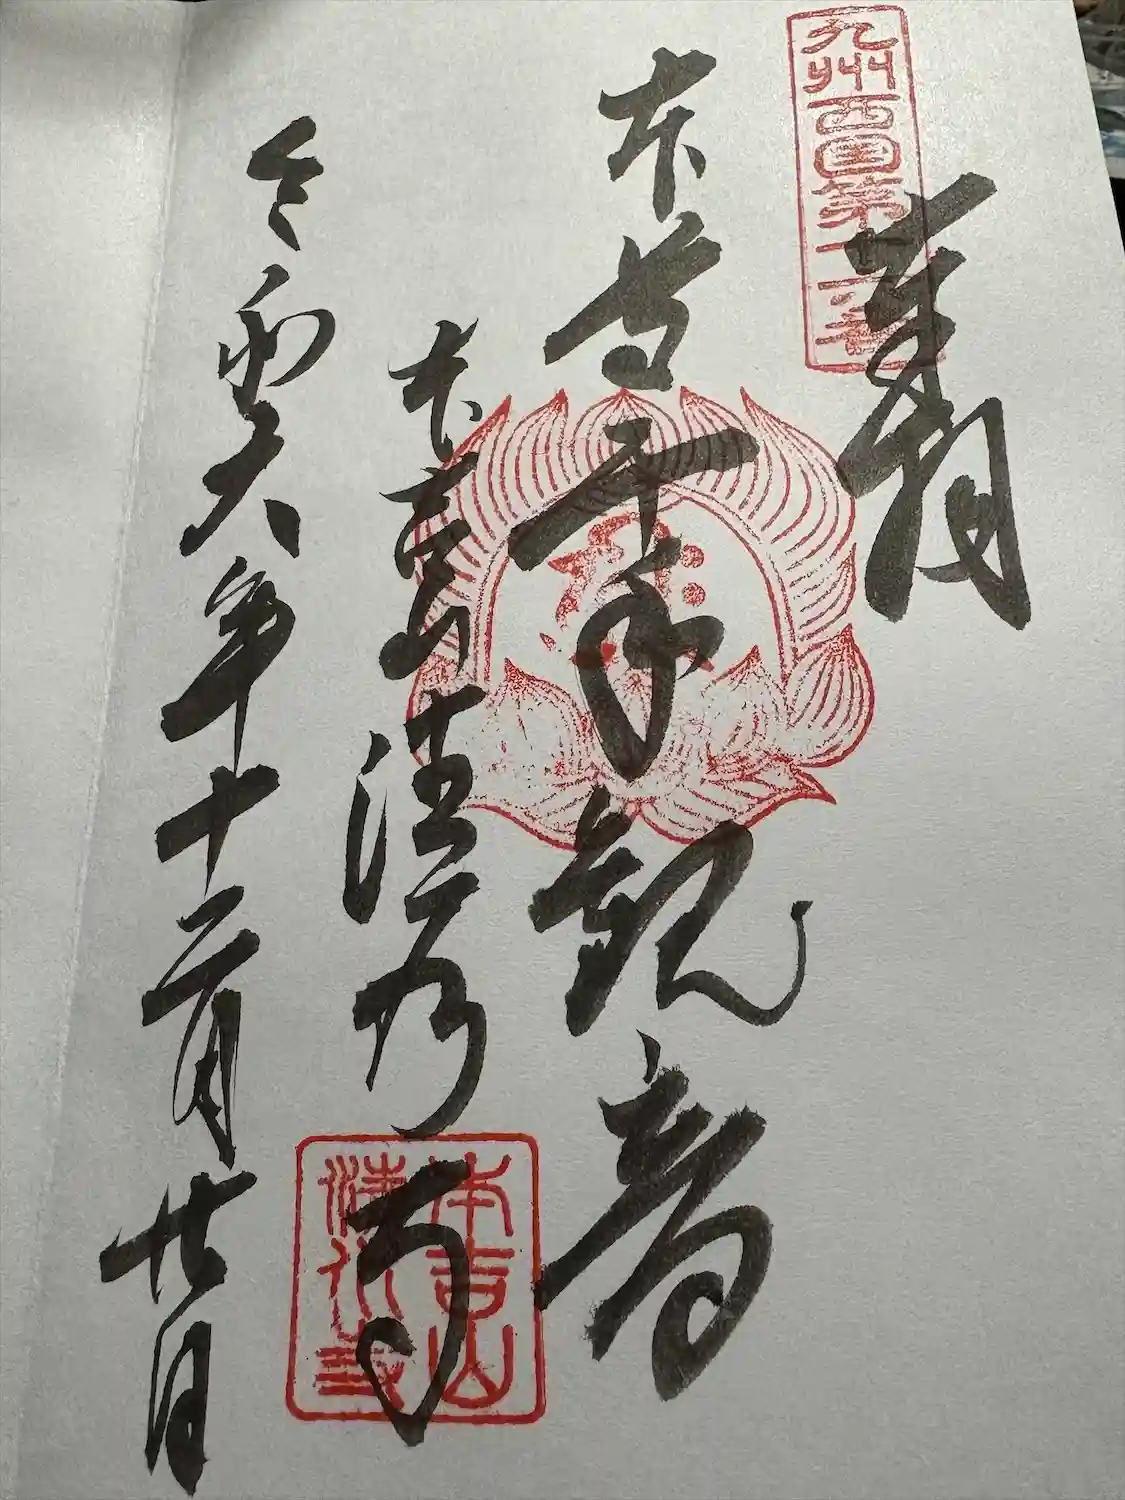 九州西国第十六番
奉拝
本尊千手観音
本吉山清水寺
本吉山
清水寺
令和六年十二月廿日